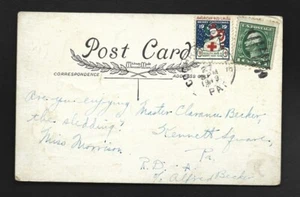 Post Card
CORRESPONDENCE
ADDRESS
Are you enjoying
the sledding?
Miss Morrison
Master Clarence Becker
Kennett Square,
Pa.
R.D.
c/o Alfred Becker
PA